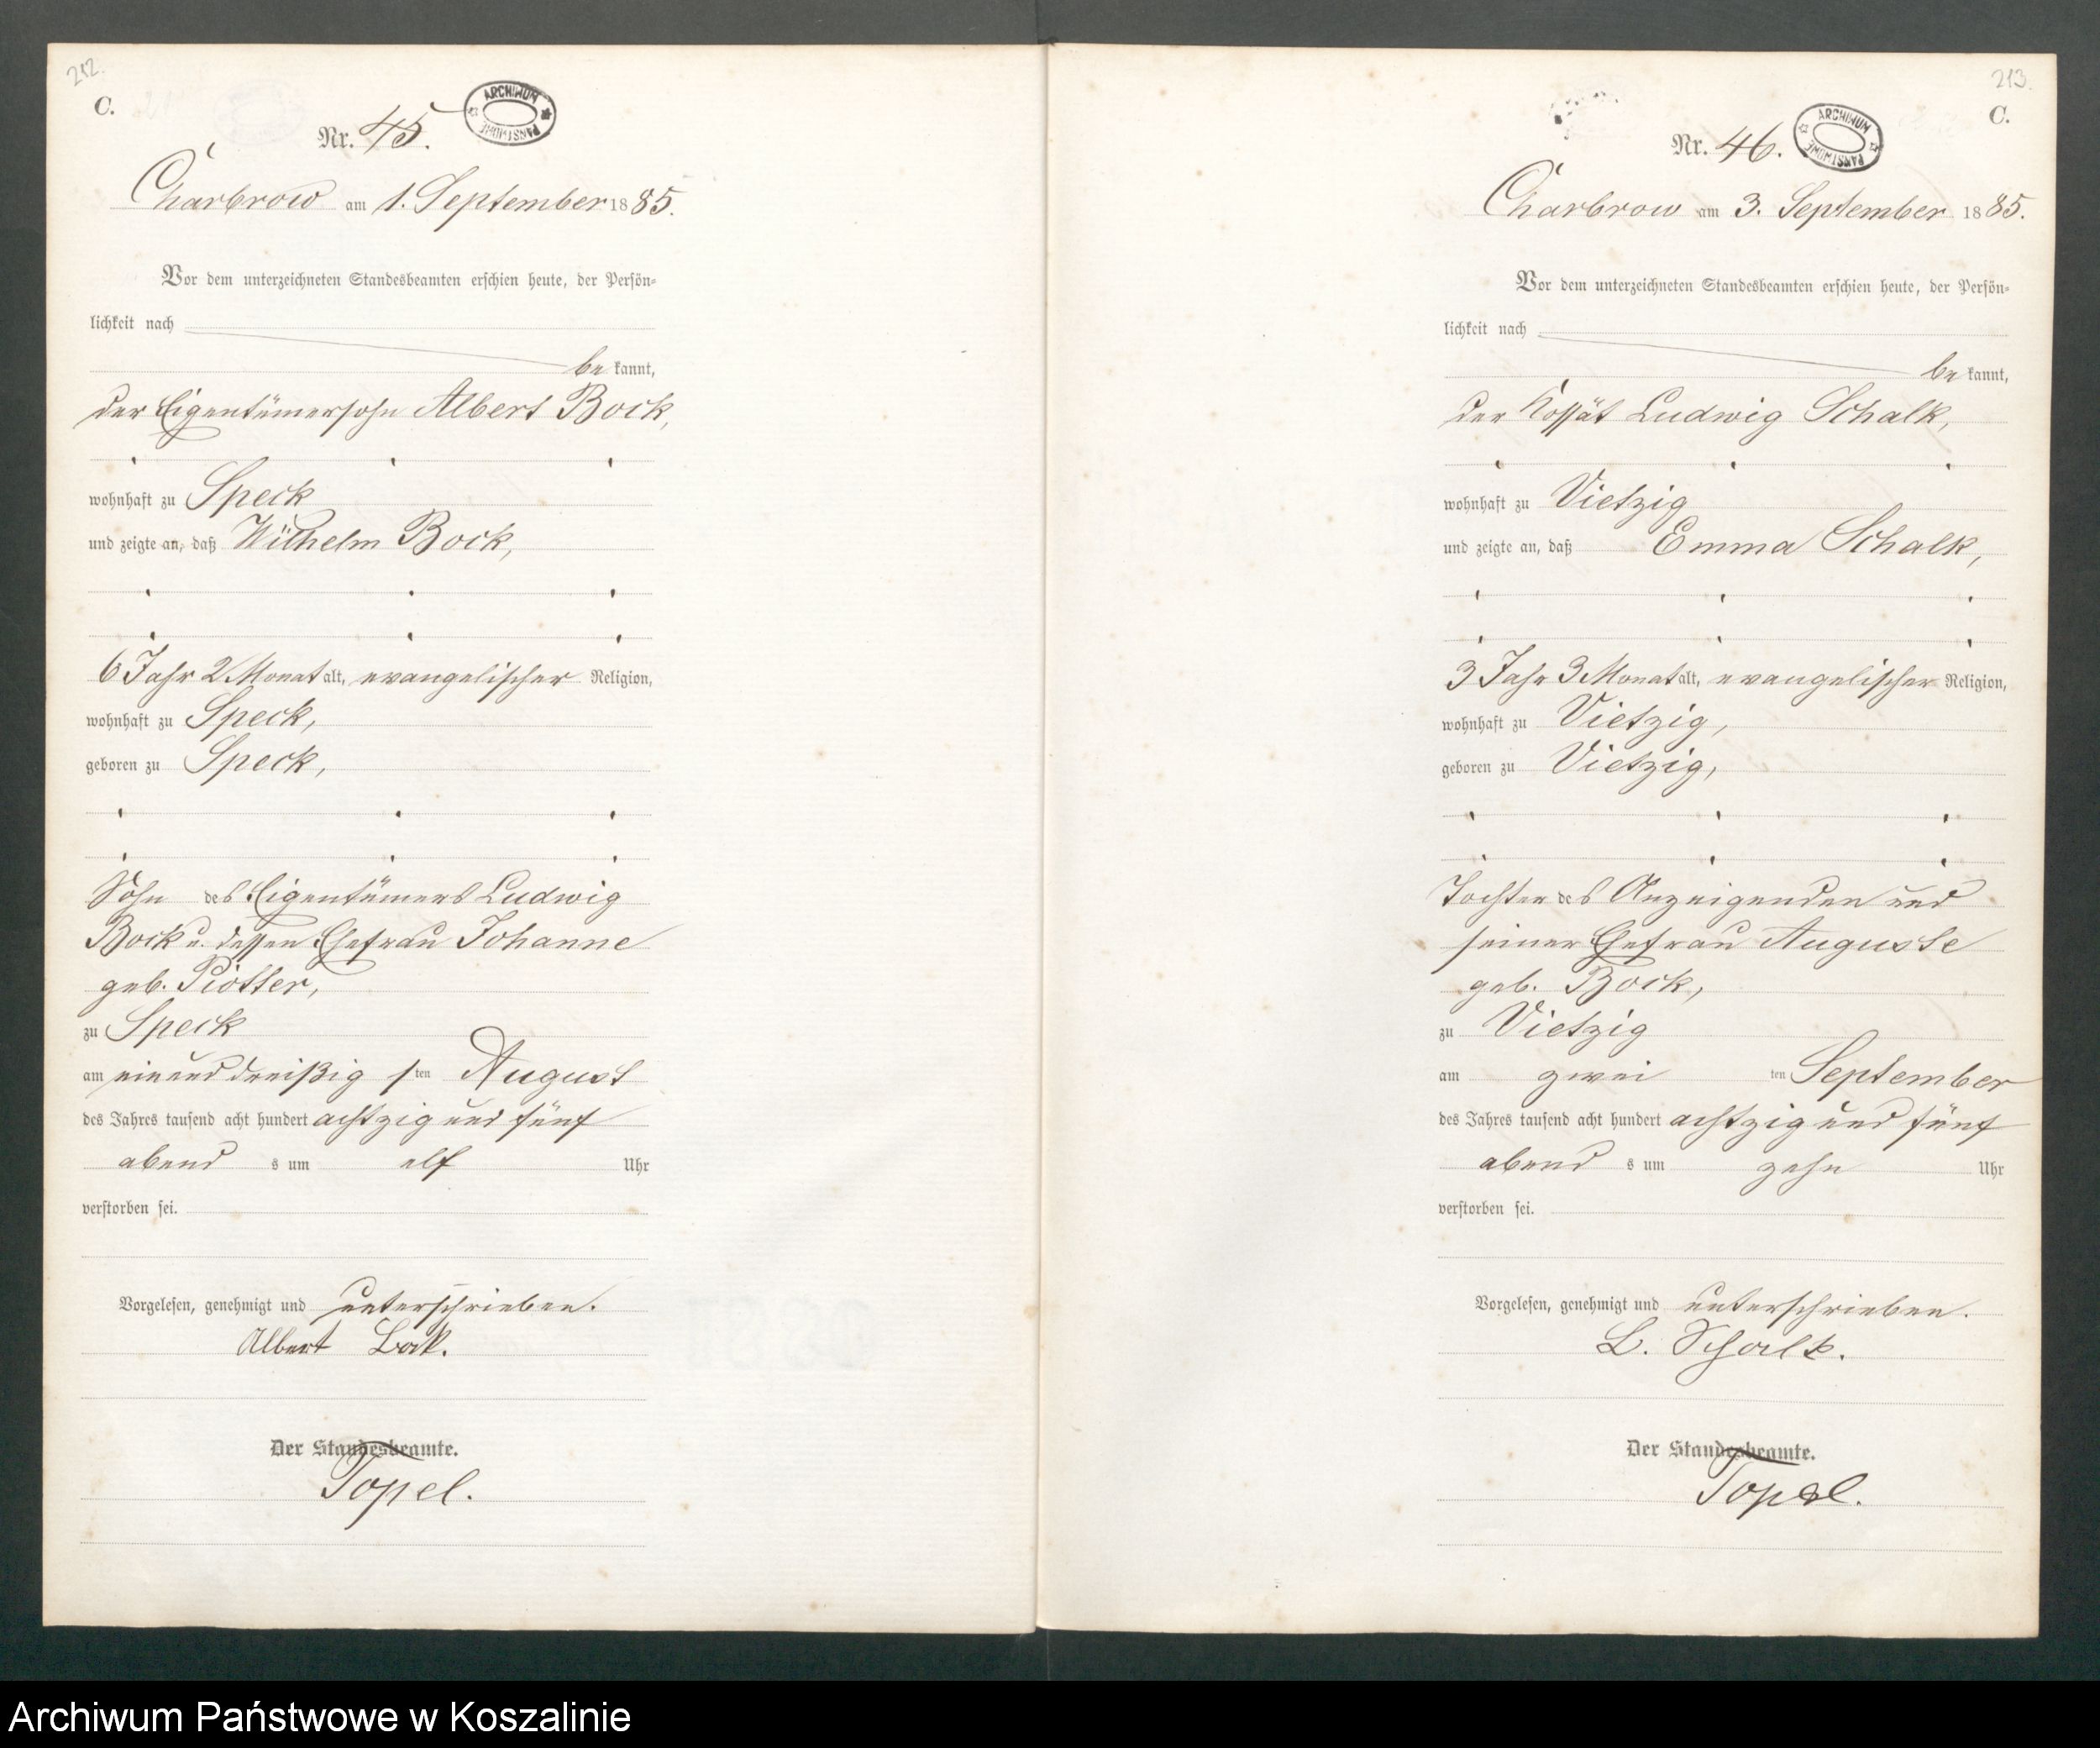 212.
C.
ARCHIWUM PAŃSTWOWE
Nr. 45.
Charbrow am 1. September 1885.
Vor dem unterzeichneten Standesbeamten erschien heute, der Persön-
lichkeit nach
be kannt,
der Eigentümersohn Albert Bock,
wohnhaft zu Speck
und zeigte an, daß Wilhelm Bock,
6 Jahr 2 Monat alt, evangelischer Religion,
wohnhaft zu Speck,
geboren zu Speck,
Sohn des Eigentümers Ludwig
Bock u. dessen Ehefrau Johanne
geb. Piotter,
zu Speck
am einund dreißig sten August
des Jahres tausend acht hundert achtzig und fünf
abend s um elf Uhr
verstorben sei.
Vorgelesen, genehmigt und unterschrieben.
Albert Bock.
Der Standesbeamte.
Topel.
213.
C.
ARCHIWUM PAŃSTWOWE
Nr. 46.
Charbrow am 3. September 1885.
Vor dem unterzeichneten Standesbeamten erschien heute, der Persön-
lichkeit nach
be kannt,
der Kossät Ludwig Schalk,
wohnhaft zu Vietzig
und zeigte an, daß Emma Schalk,
3 Jahr 3 Monat alt, evangelischer Religion,
wohnhaft zu Vietzig,
geboren zu Vietzig,
Tochter des Anzeigenden und
seiner Ehefrau Auguste
geb. Bock,
zu Vietzig
am zwei ten September
des Jahres tausend acht hundert achtzig und fünf
abend s um zehn Uhr
verstorben sei.
Vorgelesen, genehmigt und unterschrieben.
L. Schalk.
Der Standesbeamte.
Topel.
Archiwum Państwowe w Koszalinie